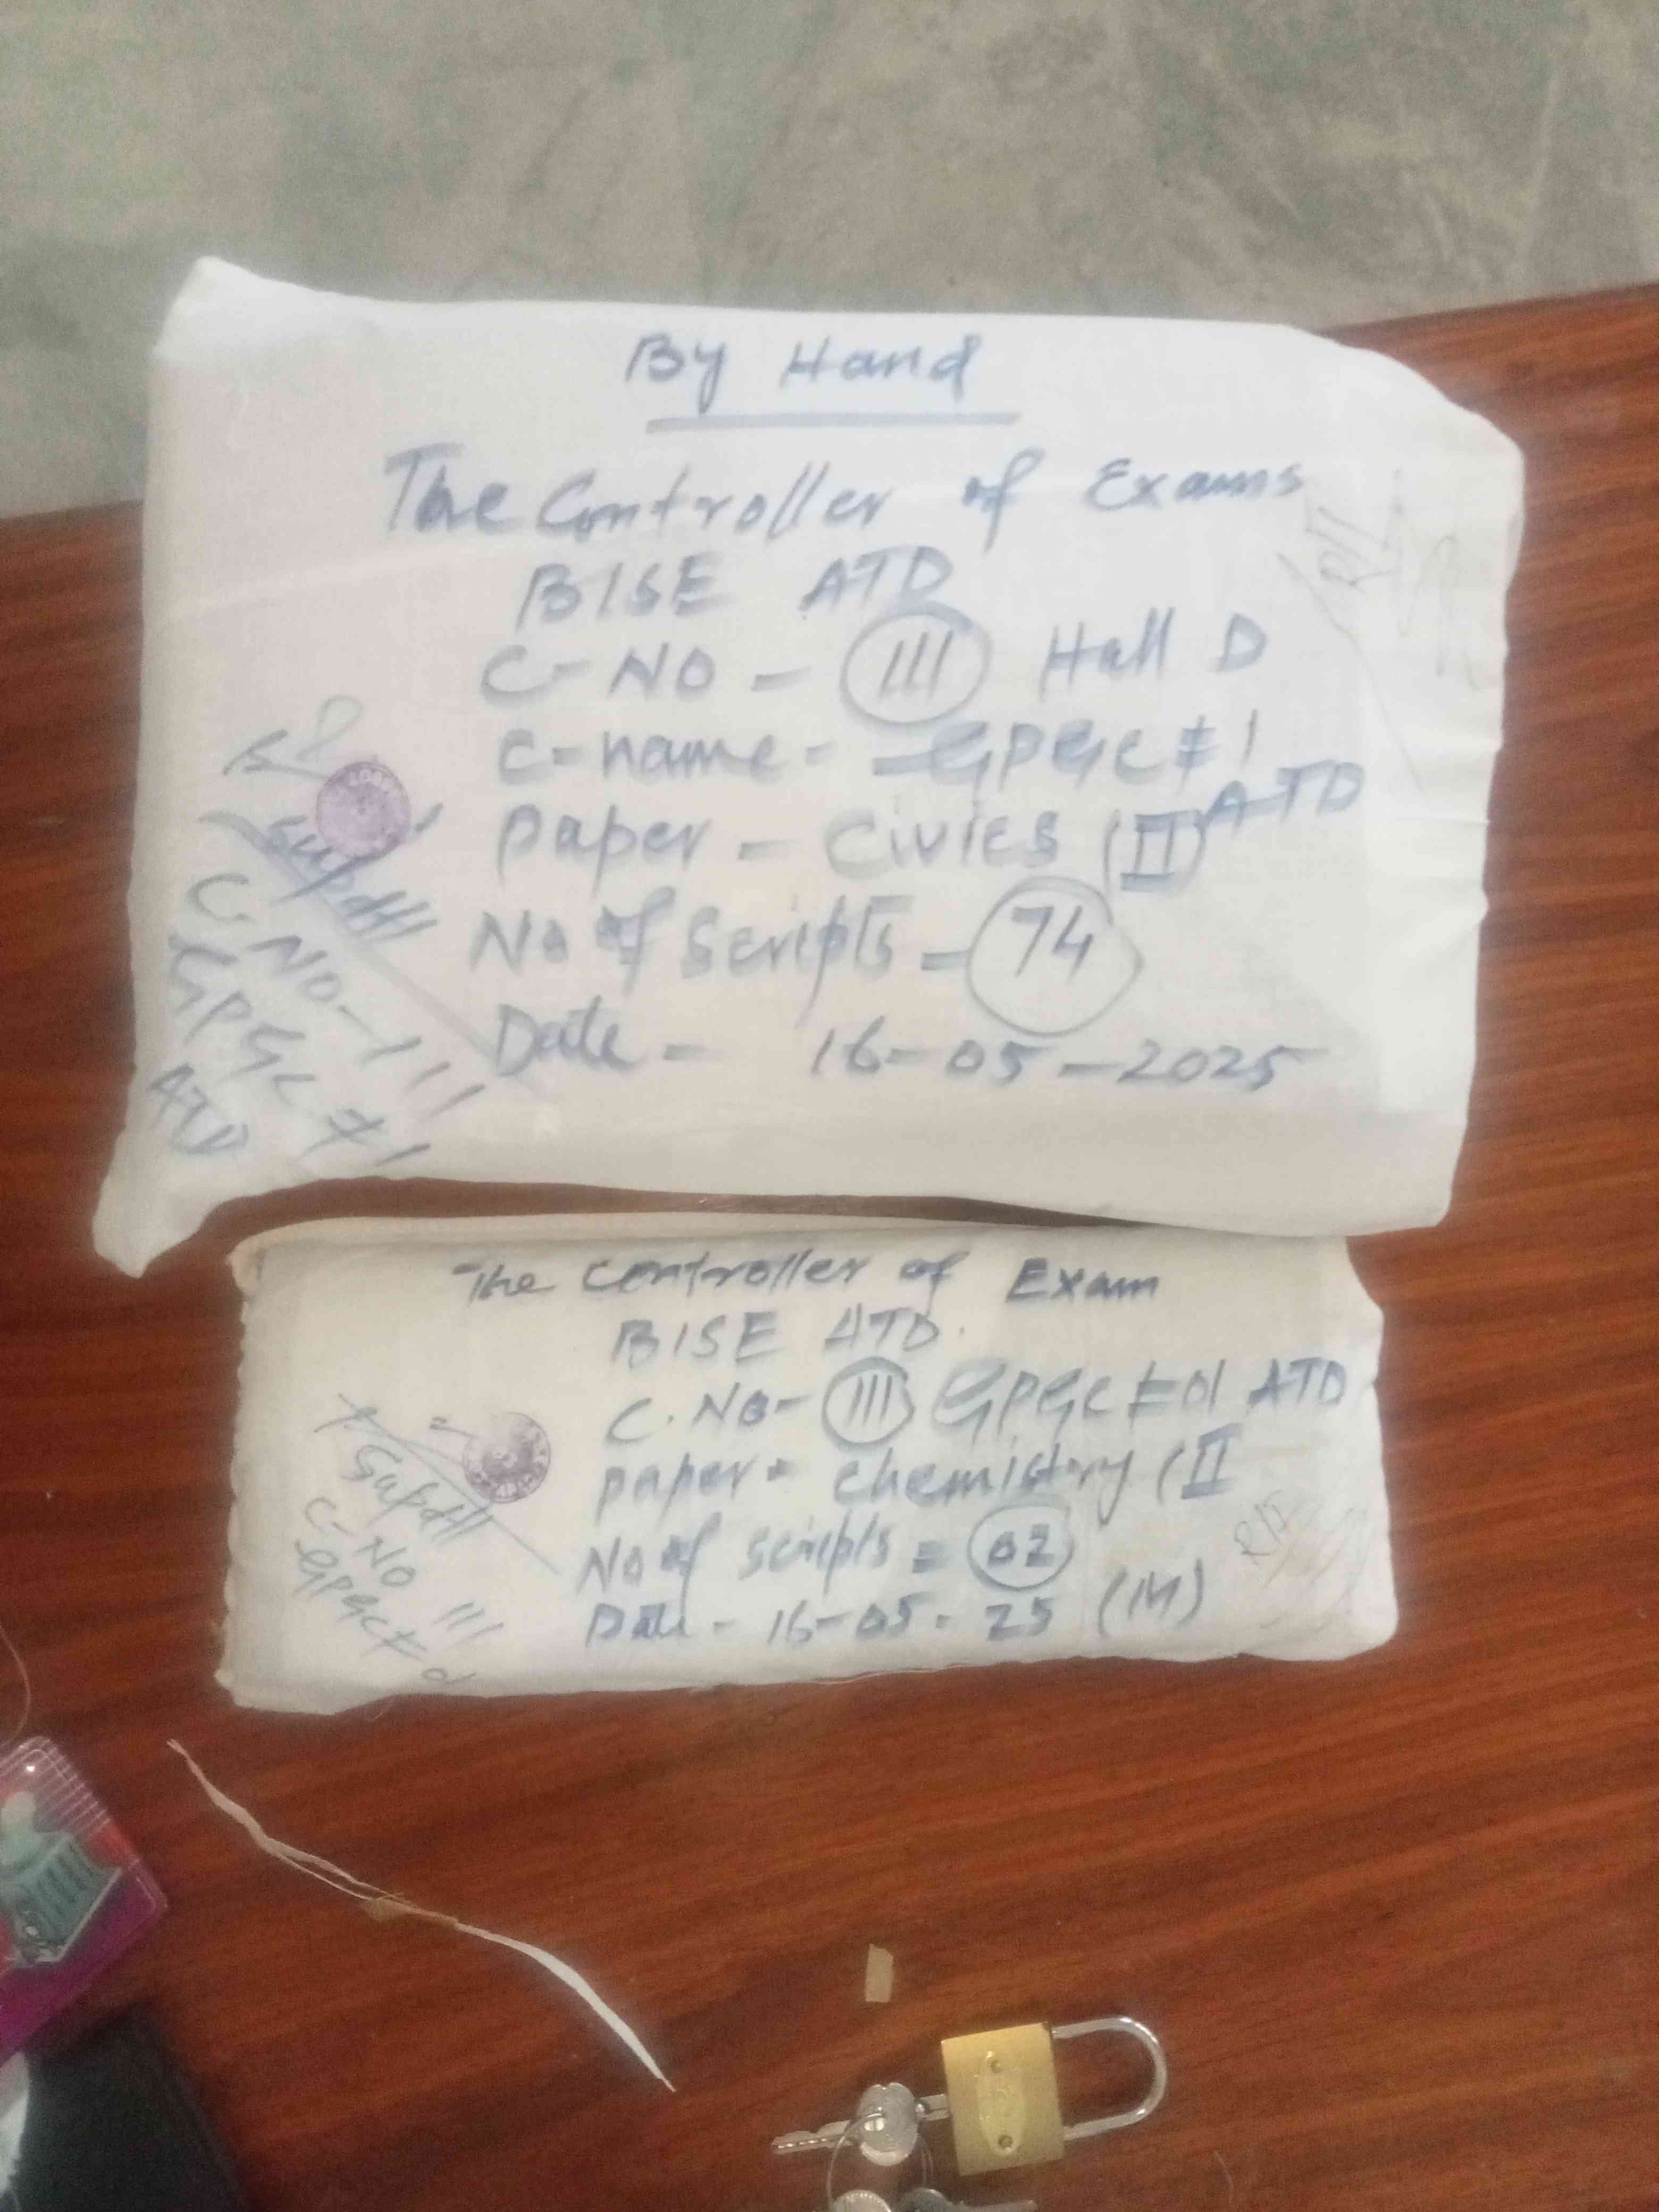 By Hand
The Controller of Exams
BISE ATD
C-NO- 111 Hall D
C-name- GPGC # 1
ATD
Paper - Civics (II)
No of Scripts - 74
Date - 16-05-2025
Supdtt
C-NO-111
GPGC # 1
ATD
The Controller of Exam
BISE ATD.
C.No- 111 GPGC # 01 ATD
paper= chemistry (II
No of scripts = 02
Date - 16-05-25 (M)
Supdtt
C-NO 111
GPGC # 01